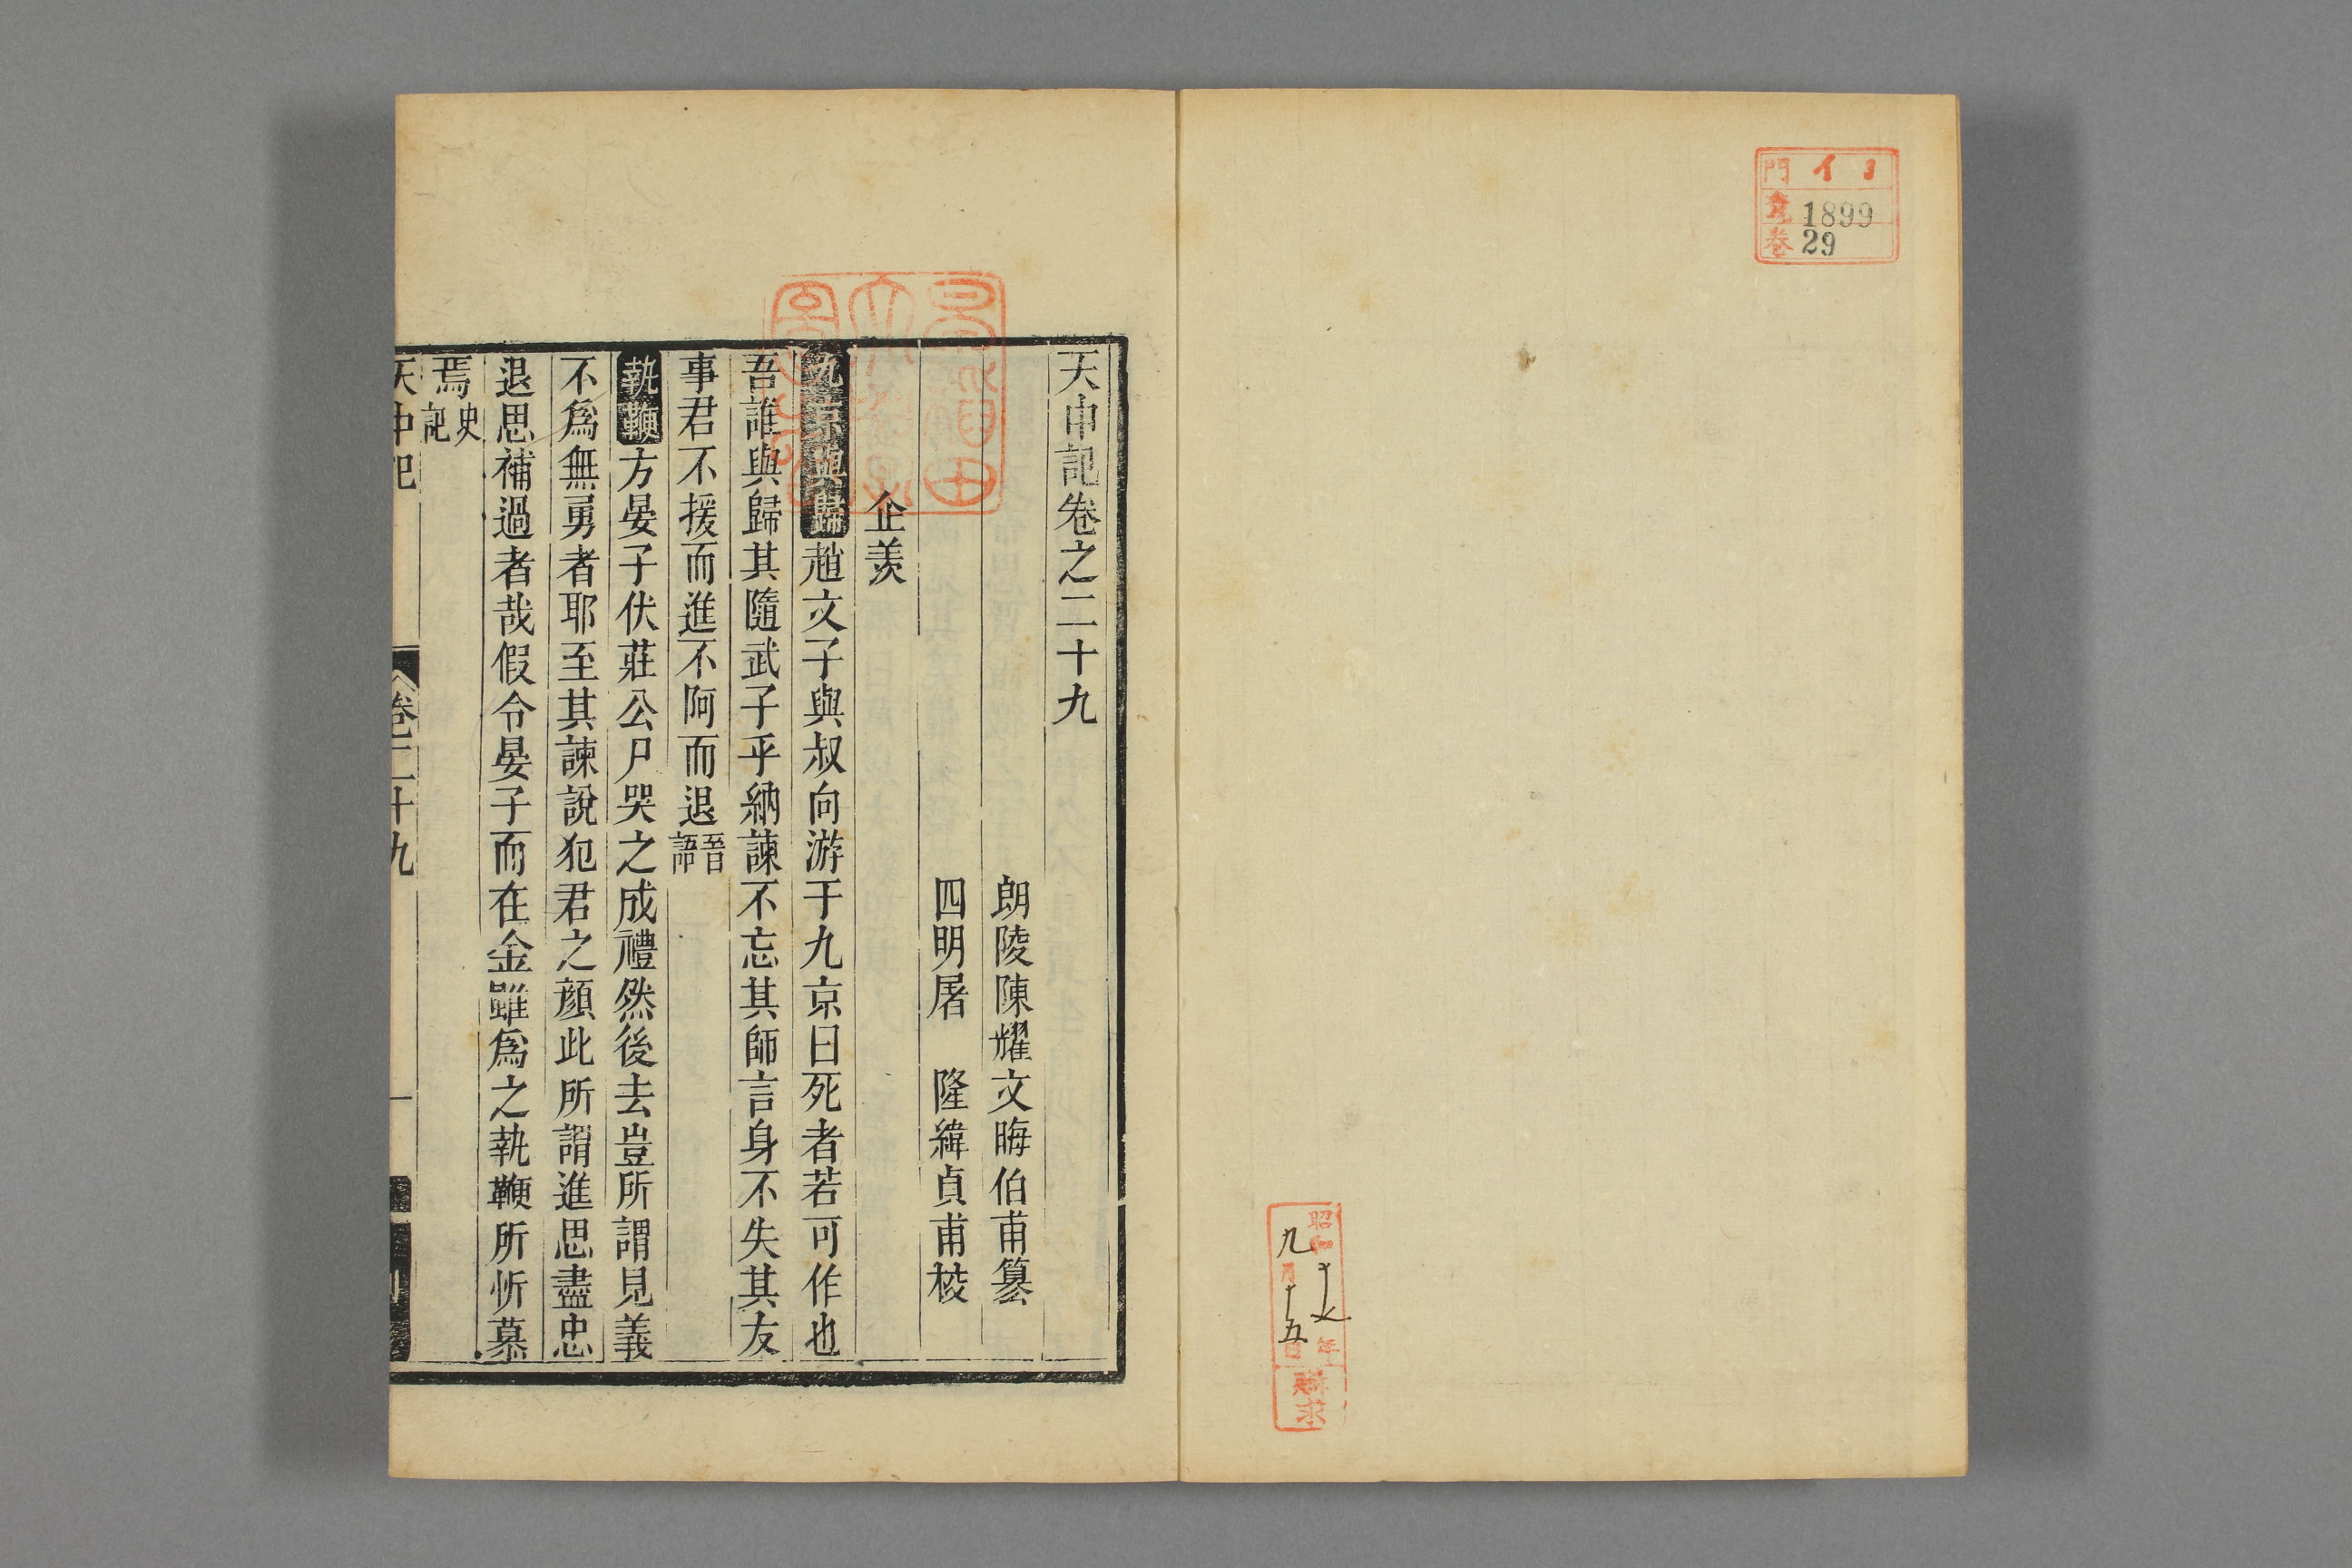 門 イ 1
號 1899
卷 29
昭和十七年
九月十五日
購求
天中記卷之二十九
朗陵陳耀文晦伯甫纂
四明屠 隆緯貞甫校
企羨
九京與歸趙文子與叔向游于九京曰死者若可作也
吾誰與歸其隨武子乎納諫不忘其師言身不失其友
事君不援而進不阿而退晉語
執鞭方晏子伏莊公尸哭之成禮然後去豈所謂見義
不爲無勇者耶至其諫說犯君之顔此所謂進思盡忠
退思補過者哉假令晏子而在金雖爲之執鞭所忻慕
焉史記
天中記 卷二十九 一